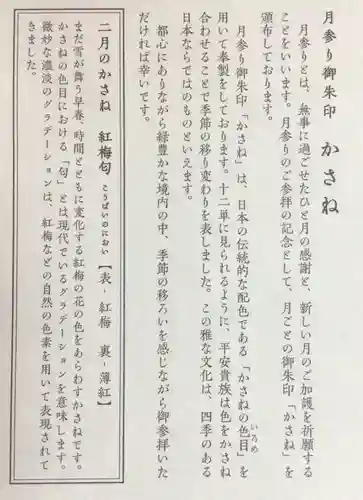 月参り御朱印　かさね
月参りとは、無事に過ごせたひと月の感謝と、新しい月のご加護を祈願する
ことをいいます。月参りのご参拝の記念として、月ごとの御朱印「かさね」を
頒布しております。
月参り御朱印「かさね」は、日本の伝統的な配色である「かさねの色目」を
いろめ
用いて奉製をしております。十二単に見られるように、平安貴族は色をかさね
合わせることで季節の移り変わりを表しました。この雅な文化は、四季のある
日本ならではのものといえます。
都心にありながら緑豊かな境内の中、季節の移ろいを感じながら御参拝いた
だければ幸いです。
二月のかさね　紅梅匂　こうばいのにおい　【表‐紅梅　裏‐薄紅】
まだ雪が舞う早春、時間とともに変化する紅梅の花の色をあらわすかさねです。
かさねの色目における「匂」とは現代でいるグラデーションを意味します。
微妙な濃淡のグラデーションは、紅梅などの自然の色素を用いて表現されて
きました。